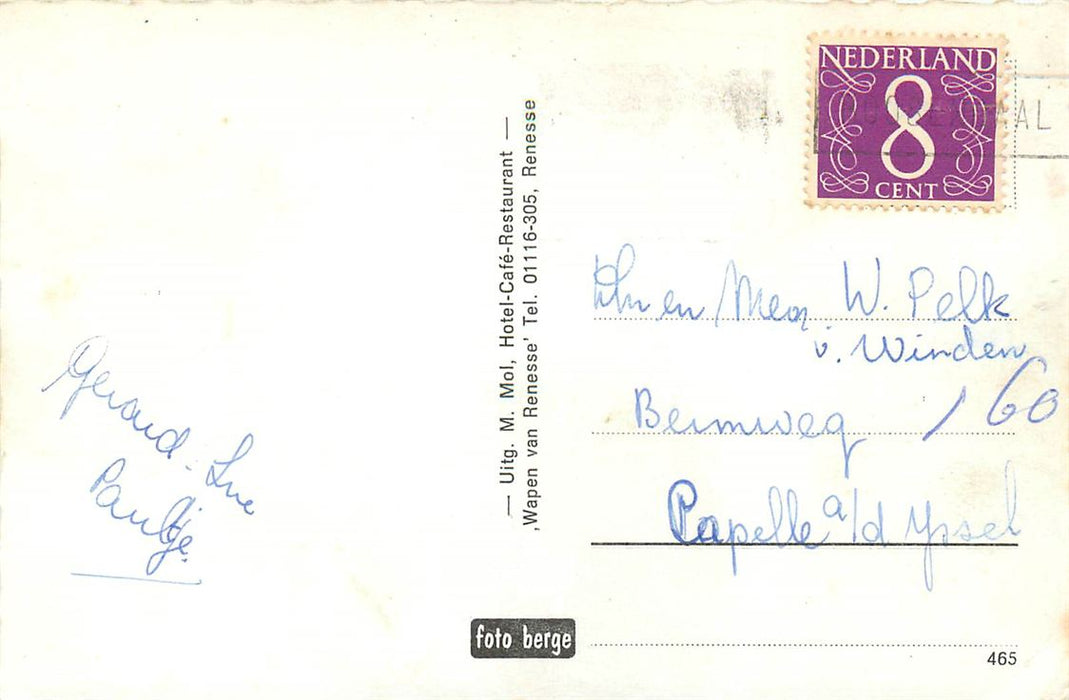 NEDERLAND
8
CENT
— Uitg. M. Mol, Hotel-Café-Restaurant —
‚Wapen van Renesse' Tel. 01116-305, Renesse
en W. Pelk
v. Winden
160
Capelle a/d Yssel
Gerard - Lne
Paultje.
foto berge
465